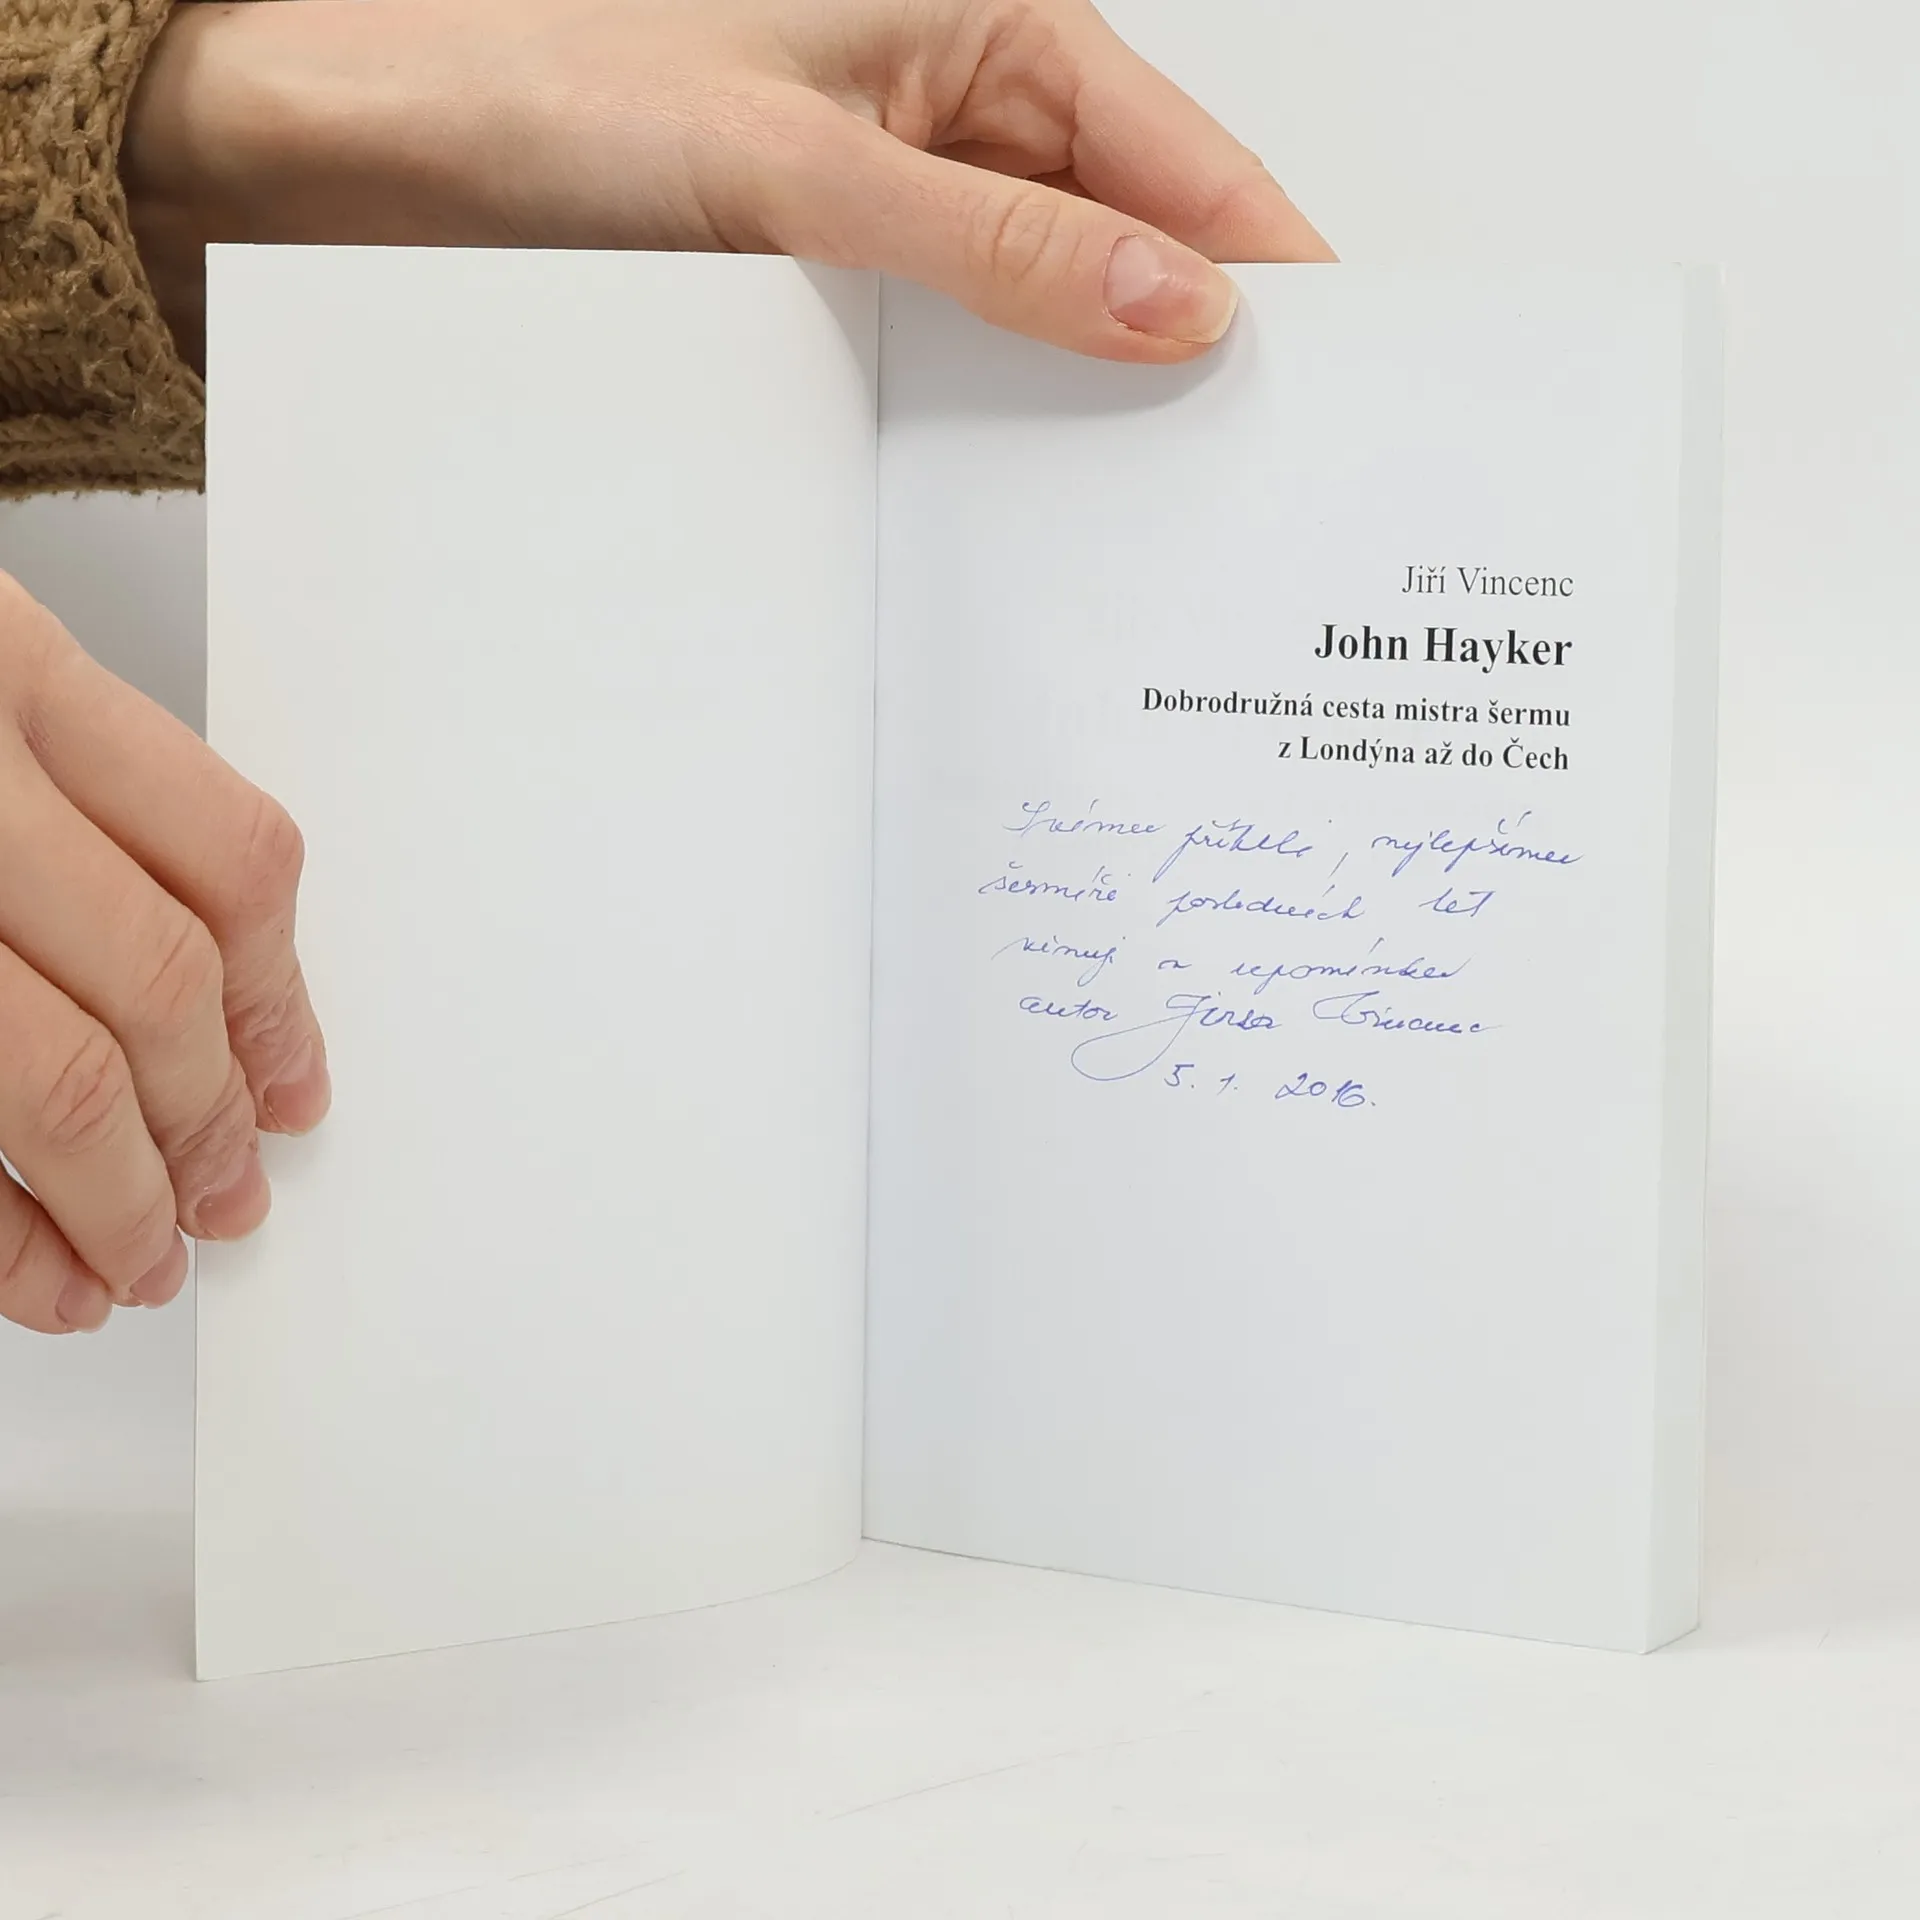 Jiří Vincenc
John Hayker
Dobrodružná cesta mistra šermu
z Londýna až do Čech
Svému příteli, nejlepšímu
šermíři posledních let
věnuji na upomínku
autor Jirsa Vincenc
5. 1. 2016.